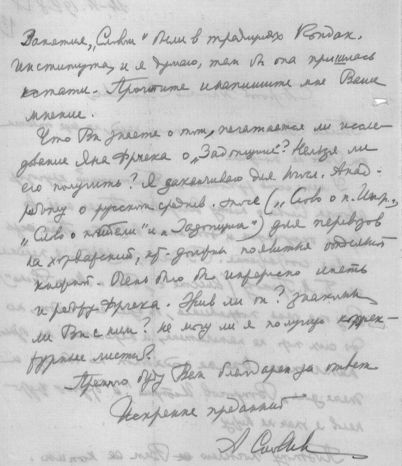 Занятия „Словом“ были в традициях Кондак.
института, и я думаю, там бы она пришлась
кстати. Прочтите и напишите мне Ваше
мнение.
Что Вы знаете о том, печатается ли иссле-
дование Яна Фрчека о „Задонщине“? Нельзя ли
его получить? Я заканчиваю для Югосл. Акад-
работу о русском среднев. эпосе („Слово о п. Игор.,
„Слово о погибели“ и „Задонщина“) для переводов
на хорватский, кот. должны появиться отдельной
книгой. Очень было бы интересно иметь
и работу Фрчека. Жив ли он? Знакомы
ли Вы с ним? Не могу ли я получить коррек-
турные листы?
Премного буду Вам благодарен за ответ
Искренне преданный
А Соловьев